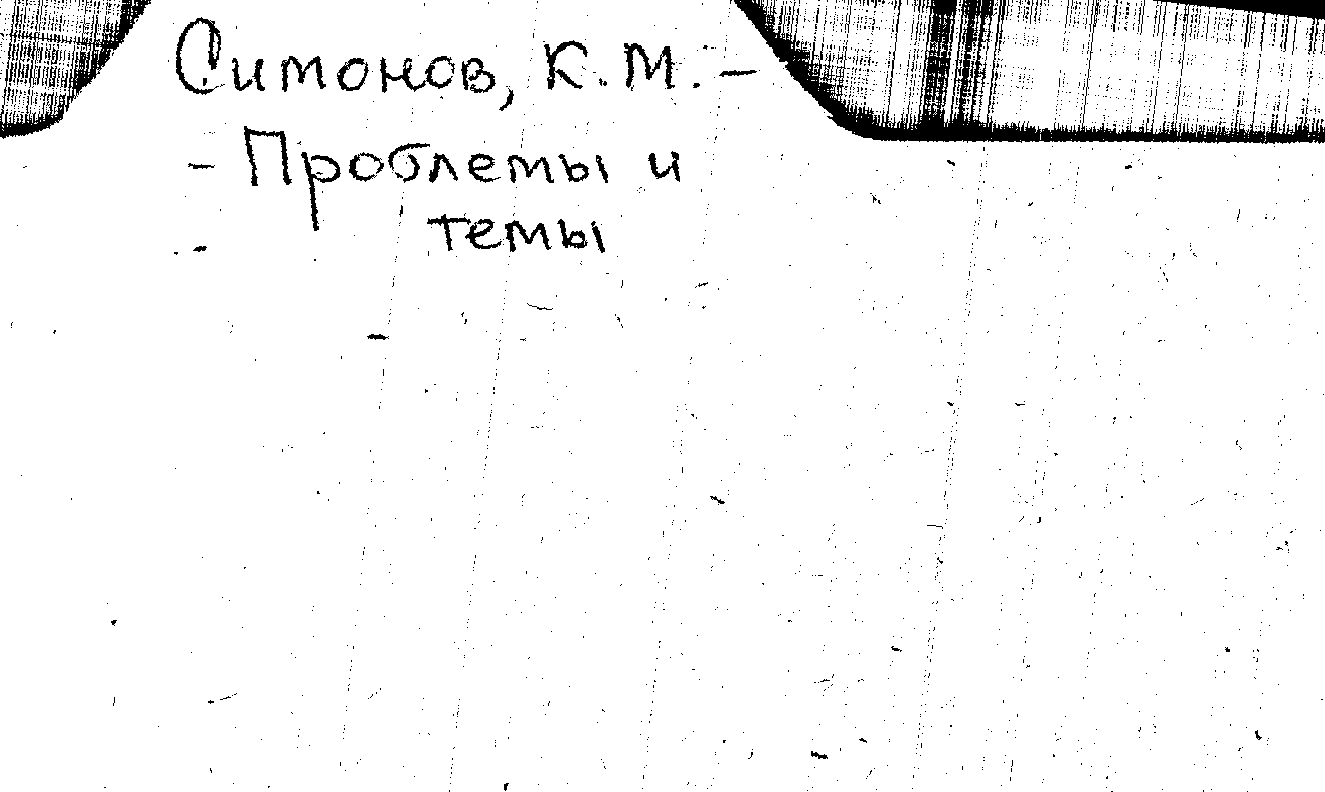 Симонов, К.М. –
– Проблемы и
темы